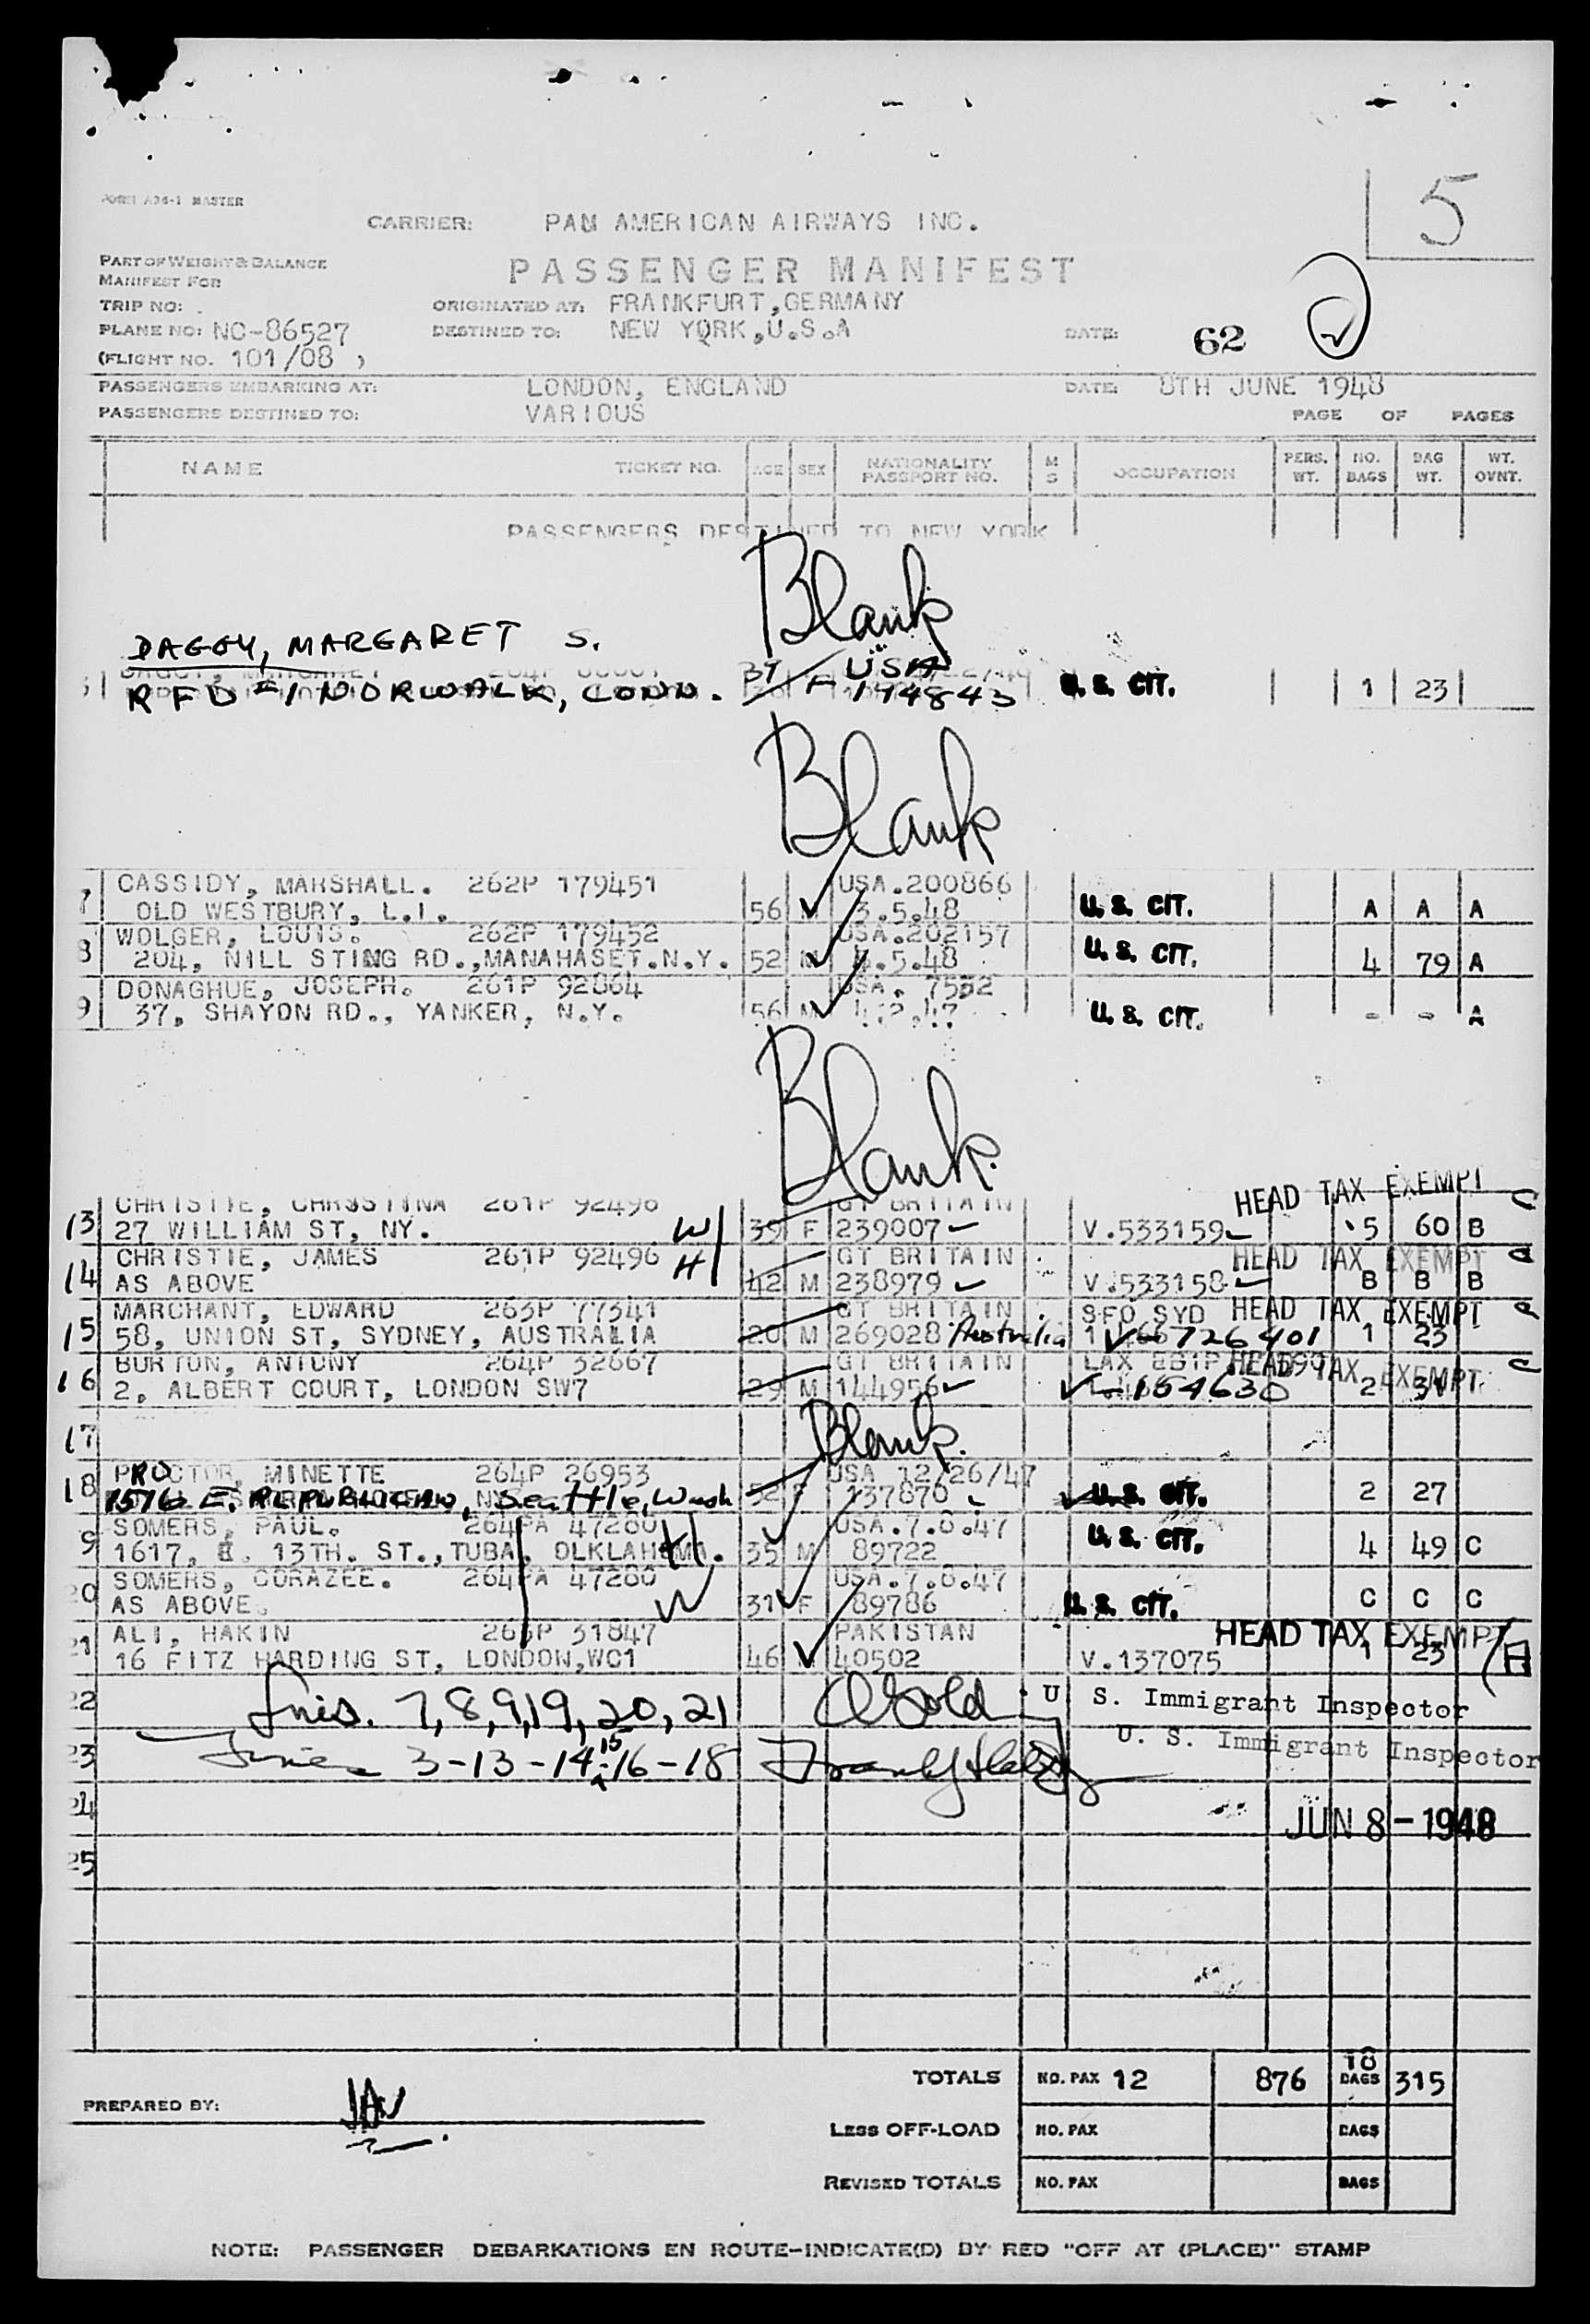 FORM A24-1 MASTER
5
CARRIER: PAN AMERICAN AIRWAYS INC.
PART OF WEIGHT & BALANCE
MANIFEST FOR
PASSENGER MANIFEST
TRIP NO: ORIGINATED AT: FRANKFURT, GERMANY
PLANE NO: NC-86527 DESTINED TO: NEW YORK, U.S.A DATE: 62
(FLIGHT NO. 101/08 )
PASSENGERS EMBARKING AT: LONDON, ENGLAND DATE: 8TH JUNE 1948
PASSENGERS DESTINED TO: VARIOUS PAGE OF PAGES
NAME TICKET NO. AGE SEX NATIONALITY PASSPORT NO. M S OCCUPATION PERS. WT. NO. BAGS BAG WT. WT. OVNT.
PASSENGERS DESTINED TO NEW YORK
Blank
DAGGY, MARGARET S. USA
RFD #1 NORWALK, CONN. 37 F 194843 U. S. CIT. 1 23
Blank
7 CASSIDY, MARSHALL. 262P 179451 USA.200866
OLD WESTBURY, L.I. 56 M 3.5.48 U. S. CIT. A A A
8 WOLGER, LOUIS. 262P 179452 USA.202157
204, NILL STING RD.,MANAHASET.N.Y. 52 M 4.5.48 U. S. CIT. 4 79 A
9 DONAGHUE, JOSEPH. 261P 92864 USA. 7552
37, SHAYON RD., YANKER, N.Y. 56 M U. S. CIT. - - A
Blank.
13 CHRISTIE, CHRISSTINA 261P 92496 GT BRITAIN HEAD TAX EXEMPT
27 WILLIAM ST, NY. W 39 F 239007 V.533159 5 60 B
14 CHRISTIE, JAMES 261P 92496 H GT BRITAIN HEAD TAX EXEMPT
AS ABOVE 42 M 238979 V.533158 B B B
15 MARCHANT, EDWARD 263P 77341 GT BRITAIN SFO SYD HEAD TAX EXEMPT
58, UNION ST, SYDNEY, AUSTRALIA 20 M 269028 Australia 726401 1 23
16 BURTON, ANTONY 264P 32667 GT BRITAIN LAX HEAD TAX EXEMPT
2, ALBERT COURT, LONDON SW7 29 M 144956 V-154630 2 31
17 Blank.
18 PROCTOR, MINETTE 264P 26953 USA 12/26/47
1516 E. REPUBLICAN, Seattle, Wash 52 F 137870 U. S. CIT. 2 27
9 SOMERS, PAUL. 264PA 47280 H USA.7.8.47
1617, E. 13TH. ST.,TUBA, OLKLAHOMA. 35 M 89722 U. S. CIT. 4 49 C
20 SOMERS, CORAZEE. 264PA 47280 W USA.7.8.47
AS ABOVE. 31 F 89786 U. S. CIT. C C C
21 ALI, HAKIN 263P 31847 PAKISTAN HEAD TAX EXEMPT
16 FITZ HARDING ST, LONDON,WC1 46 40502 V.137075 1 23
22 Lines. 7, 8, 9, 19, 20, 21 U. S. Immigrant Inspector
23 Lines 3-13-14-15-16-18 U. S. Immigrant Inspector
24 JUN 8-1948
25
TOTALS NO. PAX 12 876 18 BAGS 315
PREPARED BY: JAV
LESS OFF-LOAD NO. PAX BAGS
REVISED TOTALS NO. PAX BAGS
NOTE: PASSENGER DEBARKATIONS EN ROUTE-INDICATE(D) BY RED "OFF AT (PLACE)" STAMP